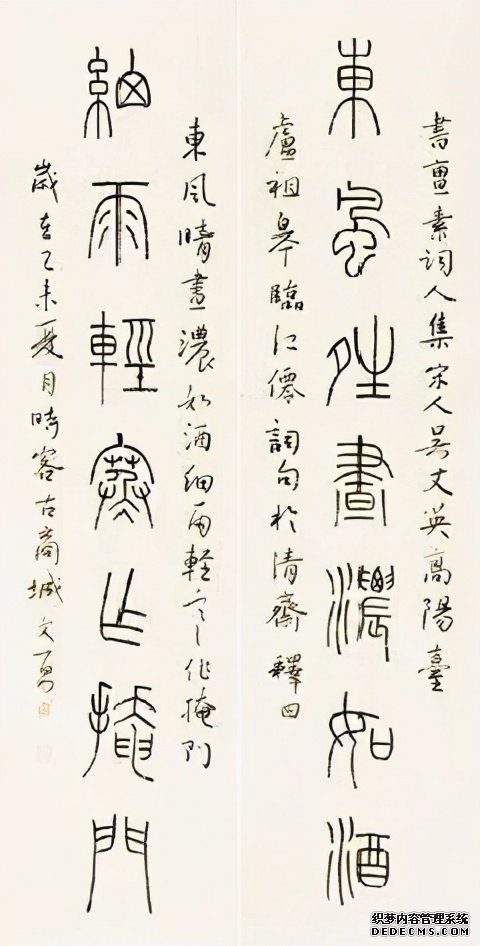 書亶素詞人集宋人吳文英高陽臺
東風晴晝濃如酒
盧祖皋臨江僊詞句於清齋 釋曰
東風晴晝濃如酒細雨輕寒乍掩門
細雨輕寒乍掩門
歲在乙未夏月時客古商城文勇
织梦内容管理系统
DEDECMS.COM